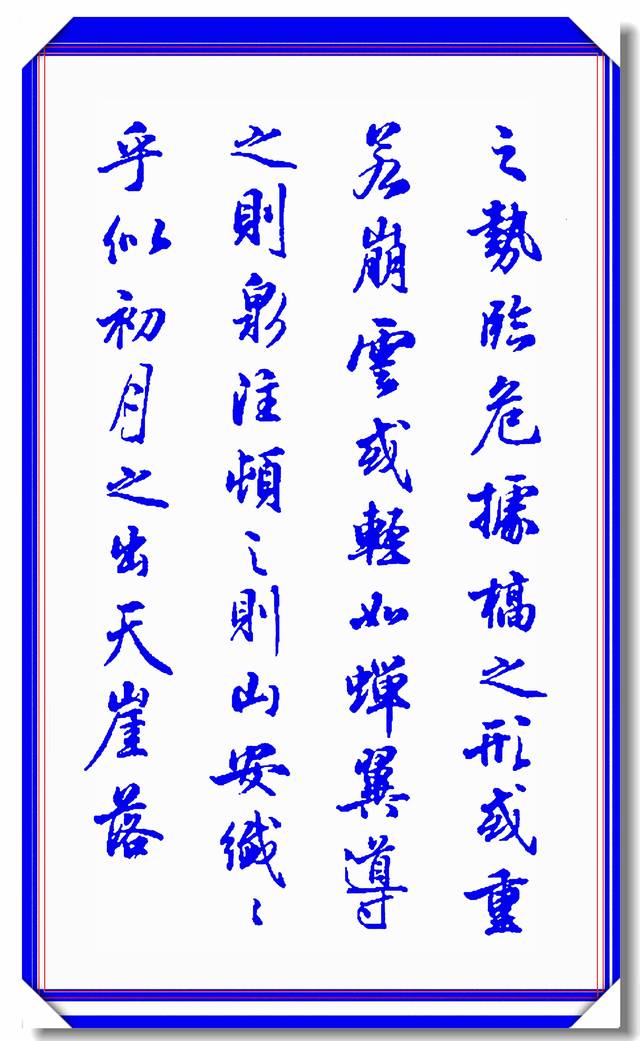 之勢臨危據槁之形或重
若崩雲或輕如蟬翼導
之則泉注頓之則山安纖〻
乎似初月之出天崖落